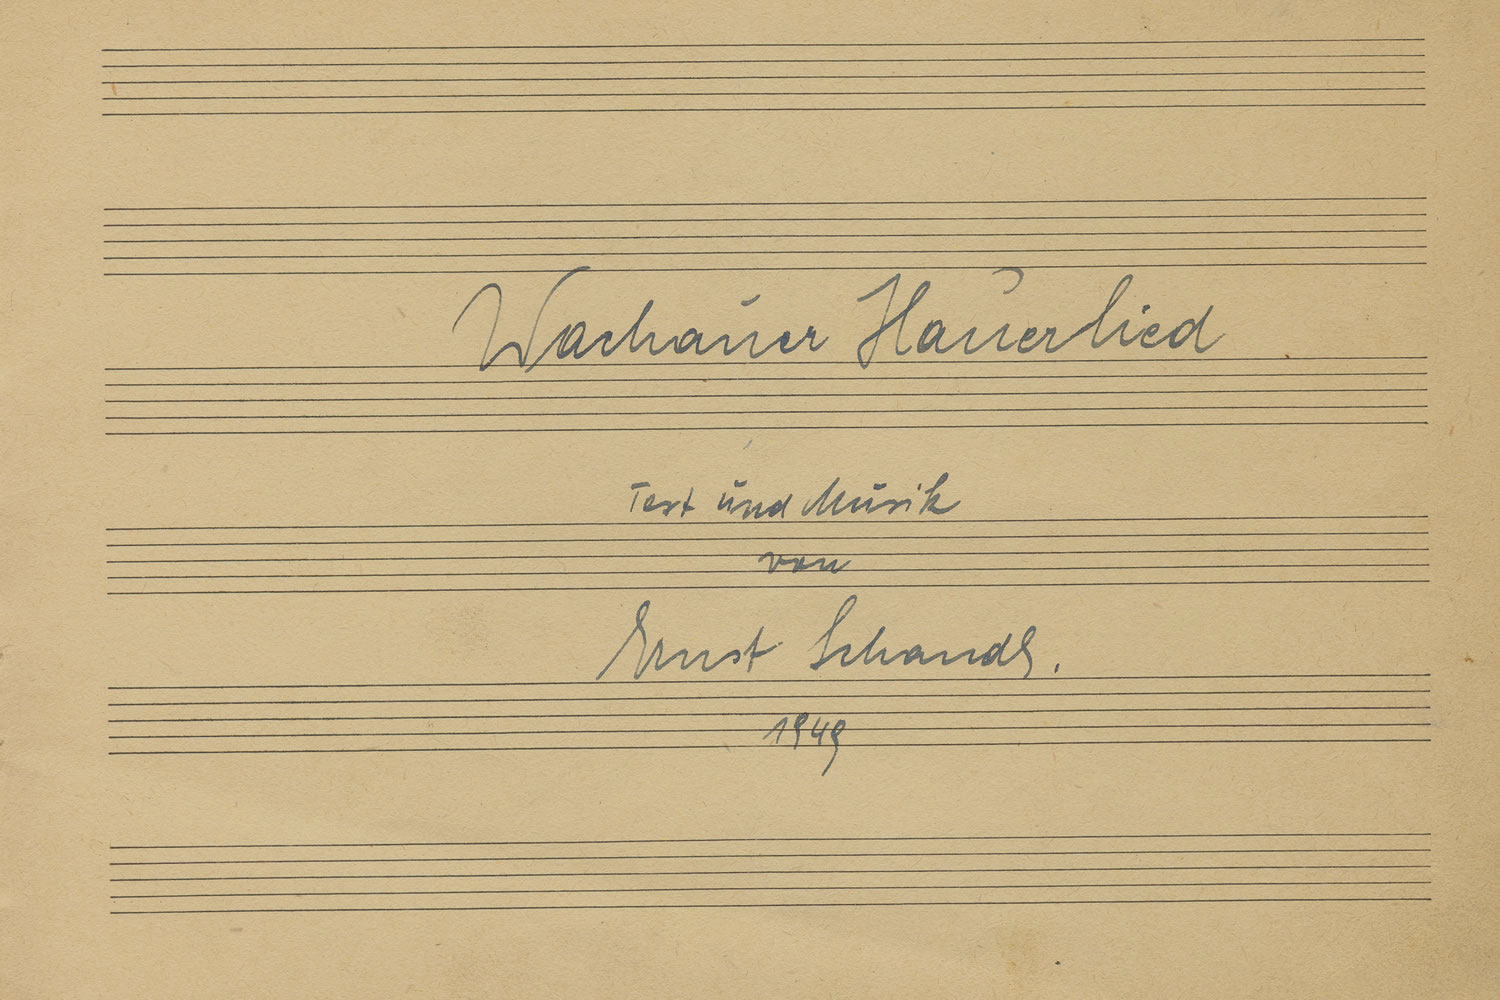 Wachauer Hauerlied
Text und Musik
von
Ernst Schandl.
1949